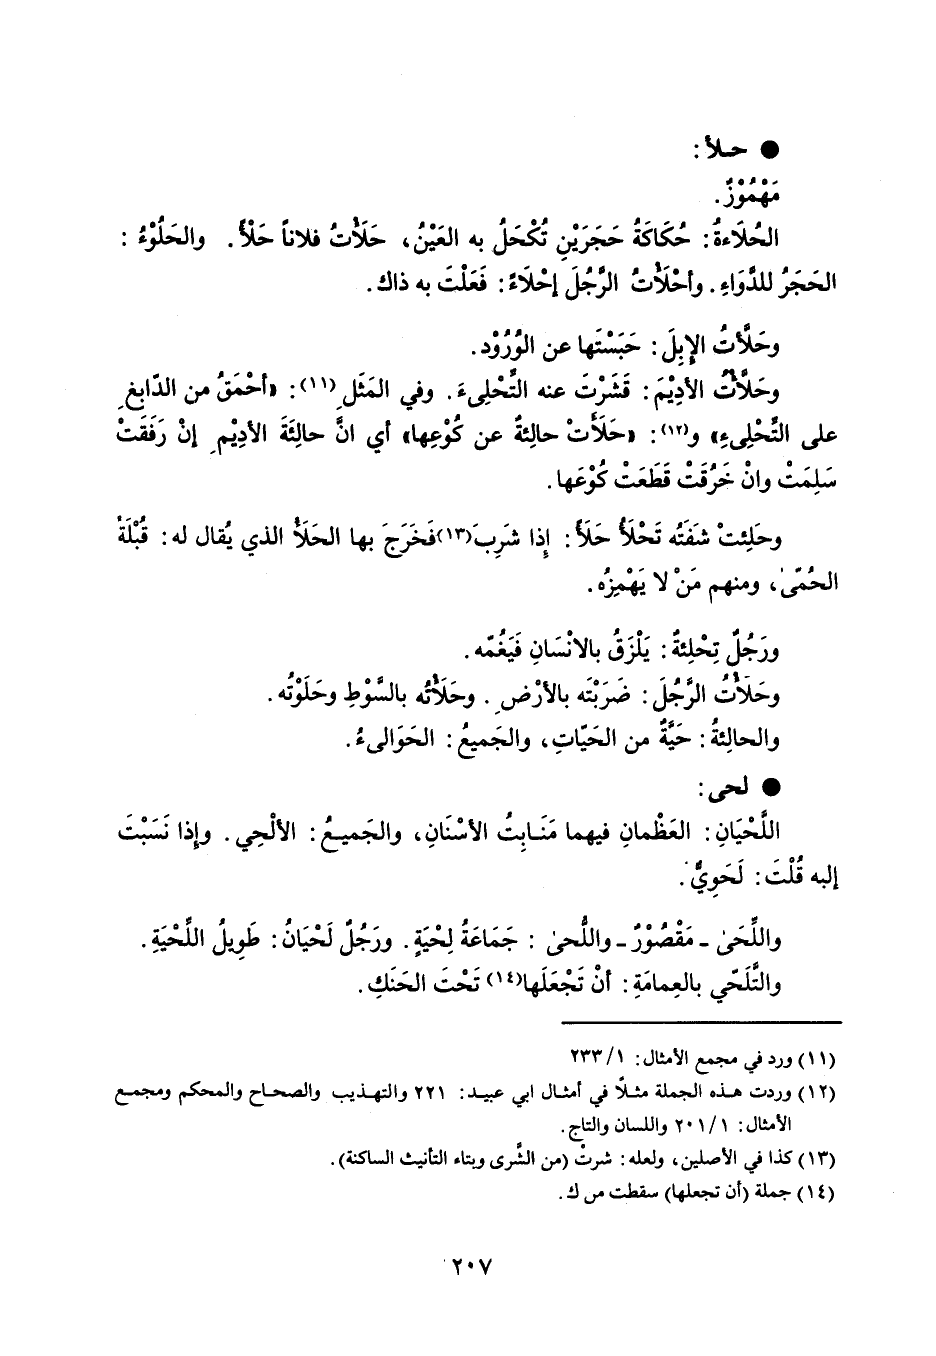 ● حلأ:
مَهْمُوْزٌ.
الحُلَاءةُ: حُكَاكَةُ حَجَرَيْنِ تُكْحَلُ به العَيْنُ، حَلَأْتُ فلاناً حَلْأً. والحَلُوْءُ:
الحَجَرُ للدَّوَاءِ. وأحْلَأْتُ الرَّجُلَ إحْلَاءً: فَعَلْتَ به ذاك.
وحَلَّأْتُ الإِبِلَ: حَبَسْتَها عن الوُرُوْد.
وحَلَّأْتُ الأدِيْمَ: قَشَرْتَ عنه التِّحْلِىءَ. وفي المَثَلِ(١١): «أحْمَقُ من الدّابغِ
على التِّحْلِىءِ» و(١٢): «حَلَأَتْ حالِئةٌ عن كُوْعِها» أي انَّ حالِئَةَ الأدِيْمِ إنْ رَفَقَتْ
سَلِمَتْ وانْ خَرُقَتْ قَطَعَتْ كُوْعَها.
وحَلِئتْ شفَتُه تَحْلَأُ حَلَأً: إِذا شرَبِ(١٣) فَخَرَجَ بها الحَلَأُ الذي يُقال له: قُبْلَةُ
الحُمّىٰ، ومنهم مَنْ لا يَهْمِزُه.
ورَجُلٌ تِحْلِئةٌ: يَلْزَقُ بالانْسَانِ فَيَغُمّه.
وحَلَأْتُ الرَّجُلَ: ضَرَبْتَه بالأرْضِ. وحَلَأْتُه بالسَّوْطِ وحَلَوْتُه.
والحالِئةُ: حَيَّةٌ من الحَيّاتِ، والجَميعُ: الحَوَالىءُ.
● لحى:
اللَّحْيَانِ: العَظْمانِ فيهما مَنَابِتُ الأسْنَانِ، والجَميعُ: الألْحِي. وإذا نَسَبْتَ
إليه قُلْتَ: لَحَوِيٌّ.
واللِّحَىٰ - مَقْصُوْرٌ - واللُّحىٰ: جَمَاعَةُ لِحْيَةٍ. ورَجُلٌ لَحْيَانُ: طَوِيلُ اللِّحْيَةِ.
والتَّلَحّي بالعِمامَةِ: أنْ تَجْعَلَها(١٤) تَحْتَ الحَنَكِ.
(١١) ورد في مجمع الأمثال: ١/ ٢٣٣
(١٢) وردت هذه الجملة مثلاً في أمثال ابي عبيد: ٢٢١ والتهذيب والصحاح والمحكم ومجمع
الأمثال: ١/ ٢٠١ واللسان والتاج.
(١٣) كذا في الأصلين، ولعله: شرتْ (من الشَّرى وبتاء التأنيث الساكنة).
(١٤) جملة (أن تجعلها) سقطت من ك.
٢٠٧